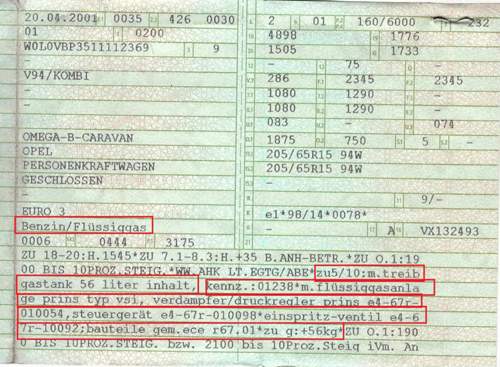 20.04.2001 0035 426 0030 2 01 160/6000 232
01 0200 4898 1776
W0L0VBP3511112369 9 1505 1733
- - 75 -
V94/KOMBI 286 2345 2345
- 1080 1290 -
- 1080 1290 -
083 - 074
OMEGA-B-CARAVAN 1875 750 5 -
OPEL 205/65R15 94W
PERSONENKRAFTWAGEN 205/65R15 94W
GESCHLOSSEN -
- 9/-
EURO 3 e1*98/14*0078*
Benzin/Flüssiggas - A VX132493
0006 0444 3175
ZU 18-20:H.1545*ZU 7.1-8.3:H.+35 B.ANH-BETR.*ZU O.1:19
00 BIS 10PROZ.STEIG.*WW.AHK LT.EGTG/ABE*zu5/10:m.treib
gastank 56 liter inhalt, kennz.:01238*m.flüssiggasanla
ge prins typ vsi, verdampfer/druckregler prins e4-67r-
010054,steuergerät e4-67r-010098*einspritz-ventil e4-6
7r-10092;bauteile gem.ece r67.01*zu g:+56kg*ZU O.1:190
0 BIS 10PROZ.STEIG. bzw. 2100 bis 10Proz.Steig iVm. An